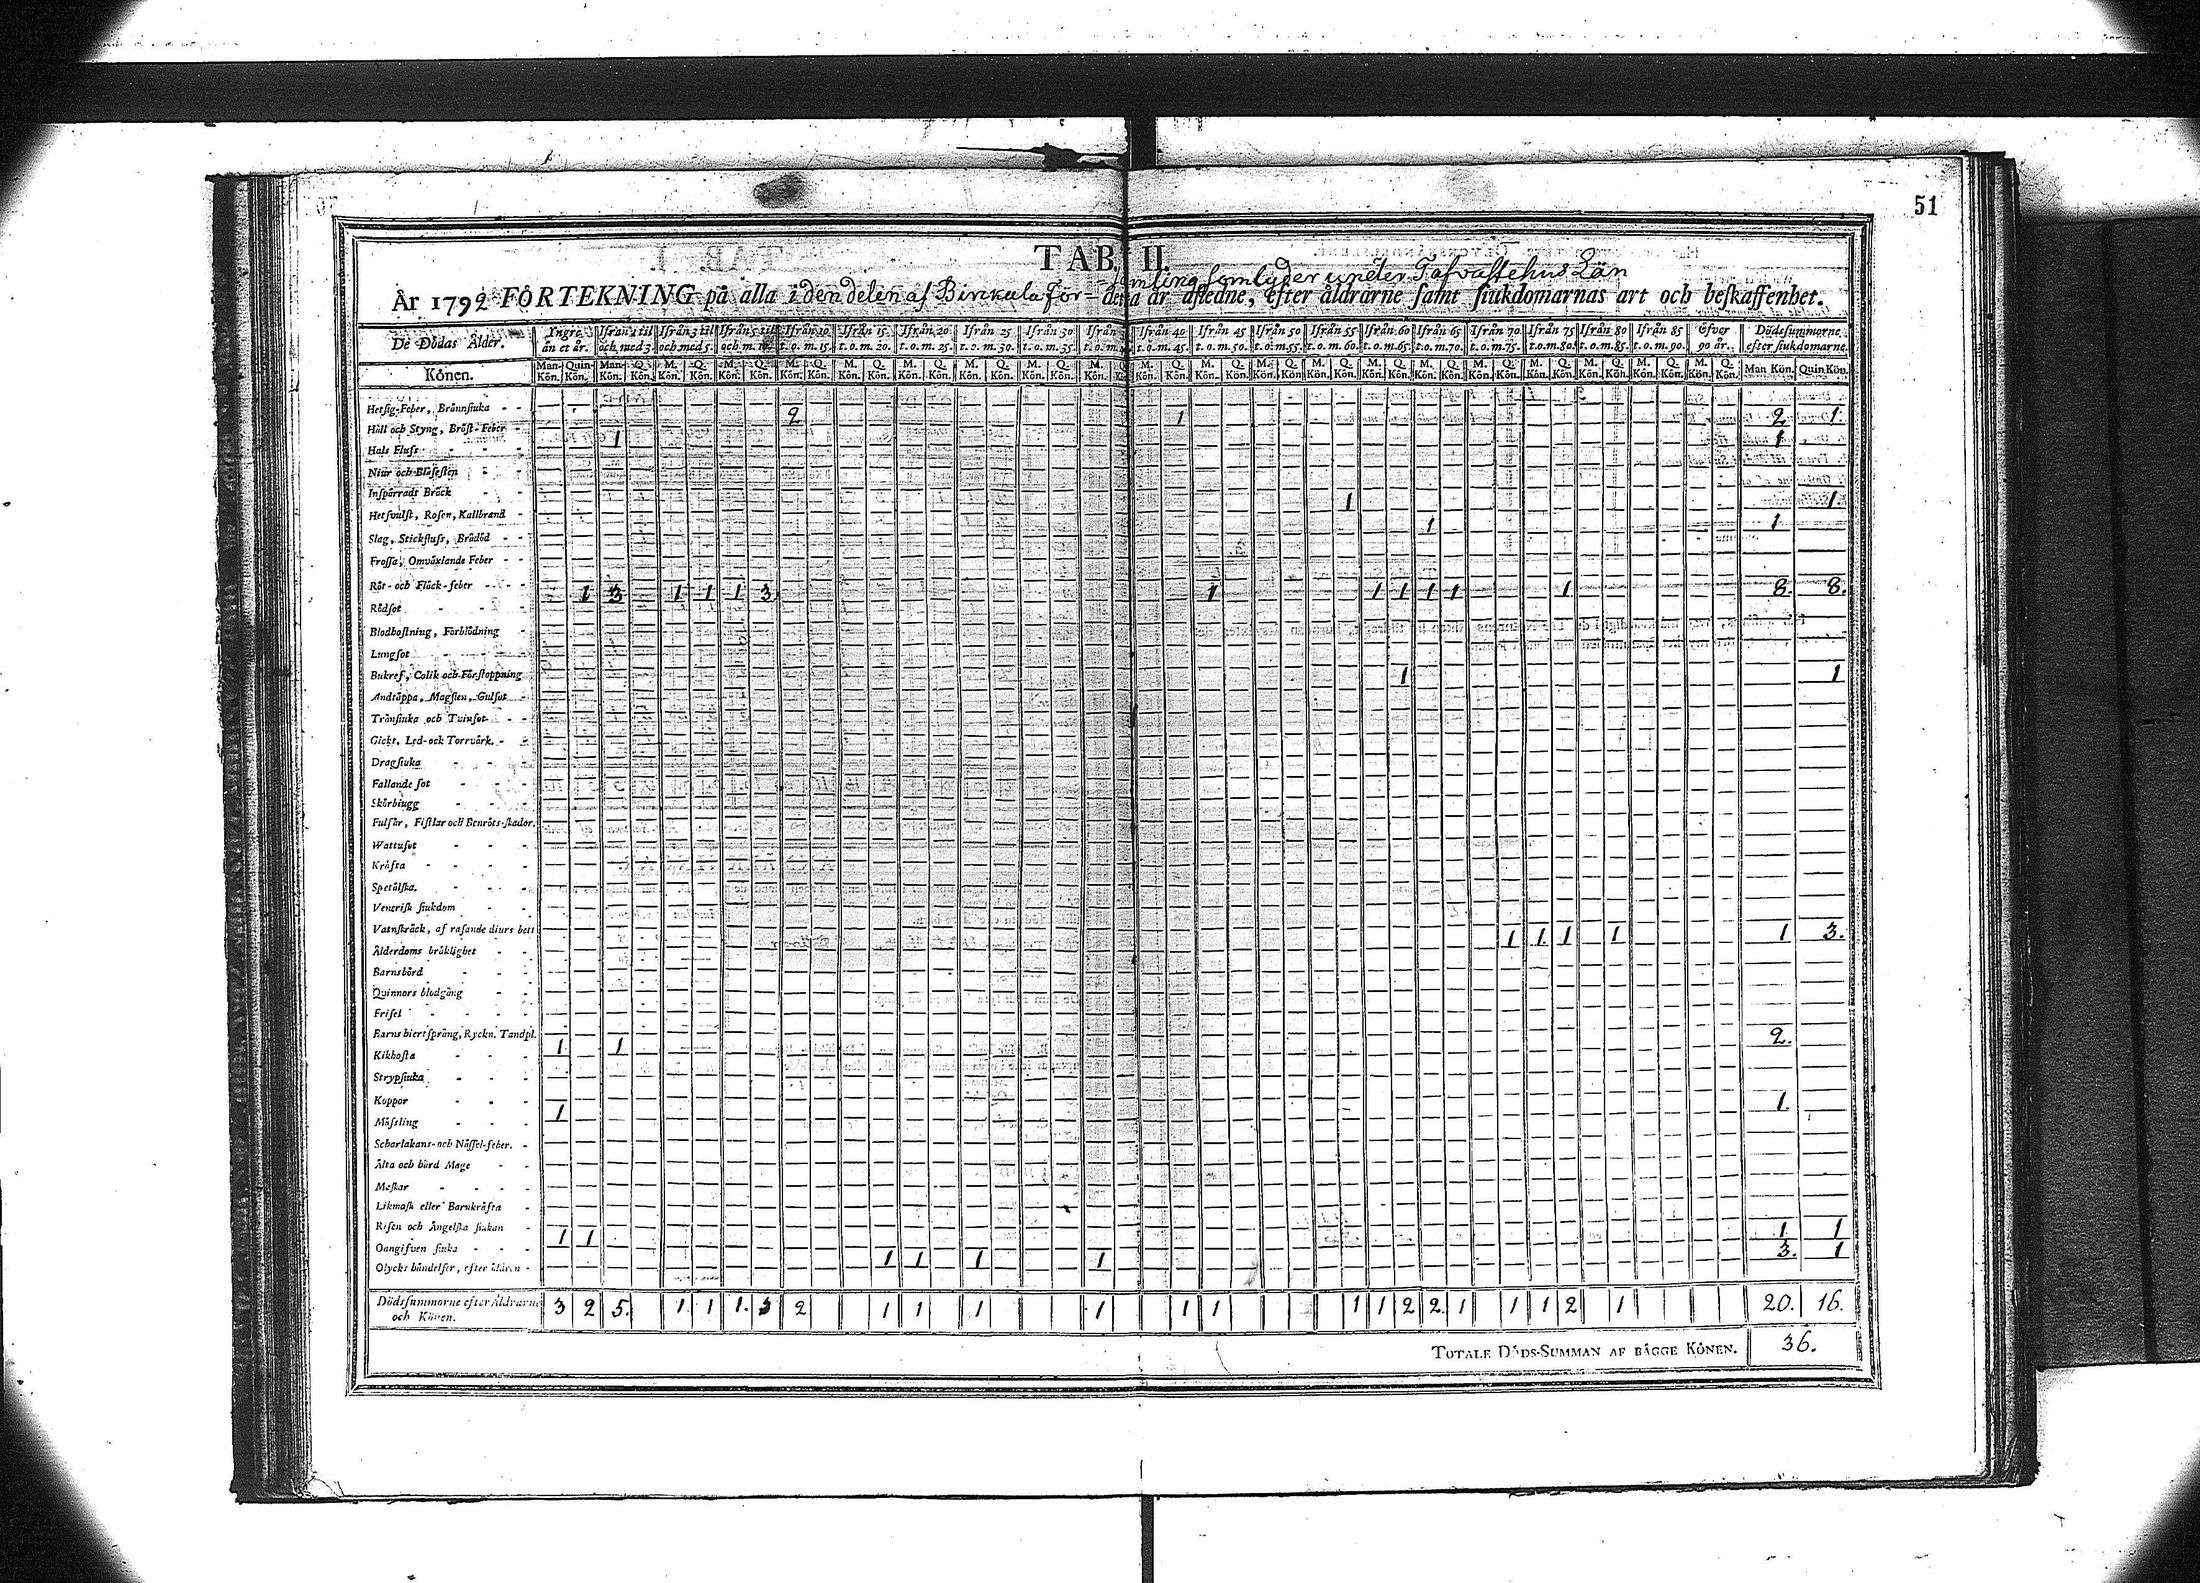 51
TAB. II.
=samling som lyder under Tafvastehus Län
År 1792 FÖRTEKNING på alla i den delen af Birckala För= detta år afledne, efter åldrarne samt siukdomarnas art och beskaffenhet.
De Dödas Ålder. Yngre än et år. Ifrån 1 til och med 3. Ifrån 3 til och med 5. Ifrån 5 til och m. 10. Ifrån 10. t. o. m. 15. Ifrån 15. t. o. m. 20. Ifrån 20 t. o. m. 25. Ifrån 25 t. o. m. 30. Ifrån 30 t. o. m. 35. Ifrån t. o. m. Ifrån 40 t. o. m. 45. Ifrån 45 t. o. m. 50. Ifrån 50 t. o. m. 55. Ifrån 55 t. o. m. 60. Ifrån 60 t. o. m. 65. Ifrån 65 t. o. m. 70. Ifrån 70 t. o. m. 75. Ifrån 75 t. o. m. 80. Ifrån 80 t. o. m. 85. Ifrån 85 t. o. m. 90. Öfver 90 år. Dödssummorne efter siukdomarne.
Könen. Man-Kön. Quin-Kön. Man-Kön. Q. Kön. M. Kön. Q. Kön. M. Kön. Q. Kön. M. Kön. Q. Kön. M. Kön. Q. Kön. M. Kön. Q. Kön. M. Kön. Q. Kön. M. Kön. Q. Kön. M. Kön. M. Kön. Q. Kön. M. Kön. Q. Kön. M. Kön. Q. Kön. M. Kön. Q. Kön. M. Kön. Q. Kön. M. Kön. Q. Kön. M. Kön. Q. Kön. M. Kön. Q. Kön. M. Kön. Q. Kön. M. Kön. Q. Kön. M. Kön. Q. Kön. Man Kön. Quin Kön.
Hetsig-Feber, Brännsiuka 2 1 2 1.
Håll och Styng, Bröst-Feber 1 1
Hals Fluss
Niur och Blåsesten
Inspärradt Bråck 1 1.
Hetsvulst, Rosen, Kallbrand 1 1
Slag, Stickfluss, Brådöd
Frossa, Omväxlande Feber
Röt- och Fläck-feber 1 3 1 1 1 3 1 1 1 1 1 1 8. 8.
Rödsot
Blodhostning, Förblödning
Lungsot
Bukref, Colik och Förstoppning 1 1
Andtäppa, Magsten, Gulsot
Trånsiuka och Tvinsot
Gickt, Led-och Torrvärk.
Dragsiuka
Fallande sot
Skörbiugg
Fulsår, Fistlar och Benröts-skador.
Wattusot
Kräfta
Spetälska.
Venerisk siukdom
Vatnskräck, af rasande diurs bett 1 1 1 1 1 3.
Ålderdoms bräklighet
Barnsbörd
Quinnors blodgång
Frisel
Barns hiertsprång, Ryckn. Tandpl. 1 1 2.
Kikhosta
Strypsiuka
Koppor 1 1.
Mässling
Scharlakans-och Nässel-feber.
Älta och hård Mage
Maskar
Likmask eller Barnkräfta
Risen och Ängelska siukan 1 1 1 1
Oangifven siuka 1 1 1 1 3. 1
Olycks händelser, efter åldren
Dödssummorne efter Åldrarne och Könen. 3 2 5. 1 1 1. 3 2 1 1 1 1 1 1 1 1 2 2. 1 1 1 2 1 20. 16.
TOTALE DÖDS-SUMMAN AF BÄGGE KÖNEN. 36.